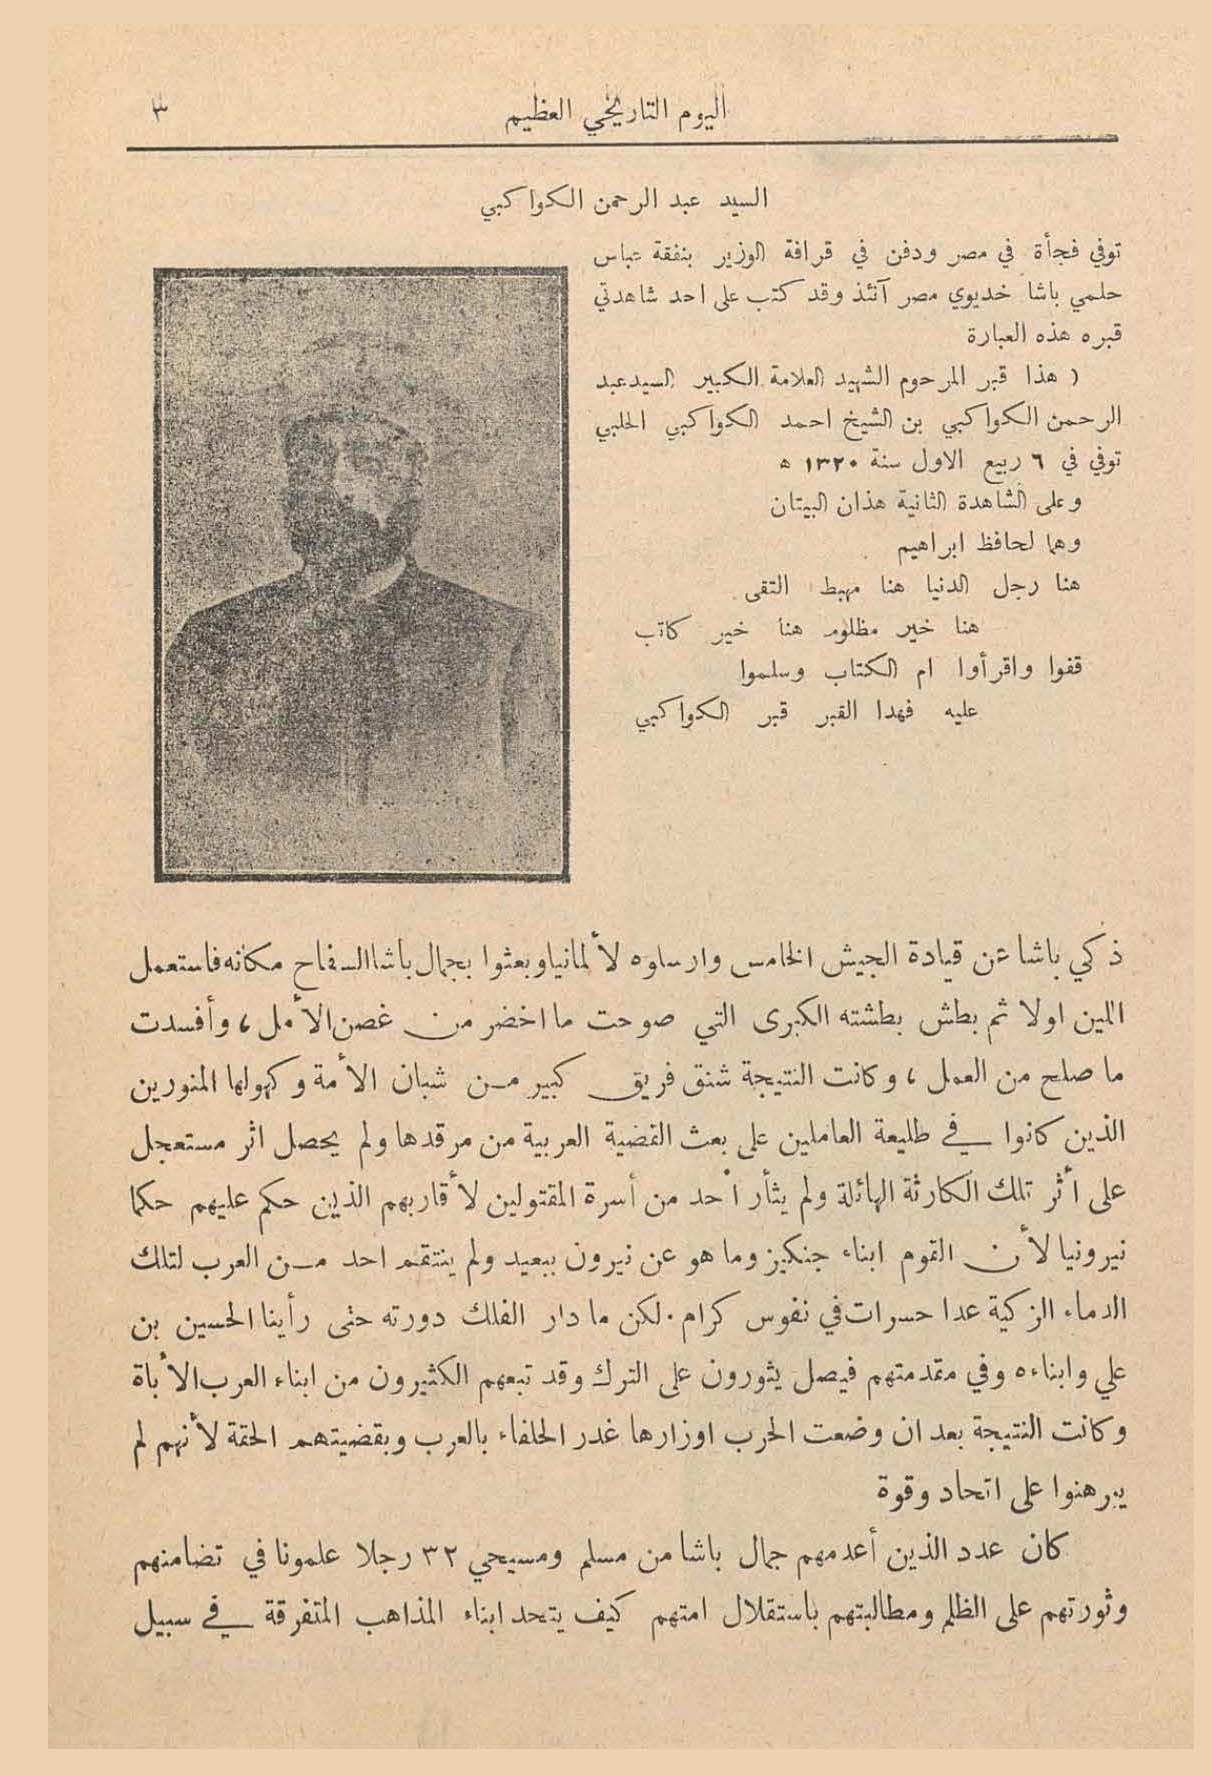 اليوم التاريخي العظيم ٣
السيد عبد الرحمن الكواكبي
توفي فجأة في مصر ودفن في قرافة الوزير بنفقة عباس
حلمي باشا خديوي مصر آنئذ وقد كتب على احد شاهدتي
قبره هذه العبارة
( هذا قبر المرحوم الشهيد العلامة الكبير السيد عبد
الرحمن الكواكبي بن الشيخ احمد الكواكبي الحلبي
توفي في ٦ ربيع الاول سنة ١٣٢٠ ه
وعلى الشاهدة الثانية هذان البيتان
وهما لحافظ ابراهيم
هنا رجل الدنيا هنا مهبط التقى
هنا خير مظلوم هنا خير كاتب
قفوا واقرأوا ام الكتاب وسلموا
عليه فهدا القبر قبر الكواكبي
ذكي باشا عن قيادة الجيش الخامس وارسلوه لألمانيا وبعثوا بجمال باشا السفاح مكانه فاستعمل
اللين اولا ثم بطش بطشته الكبرى التي صوحت ما اخضر من غصن الأمل ، وأفسدت
ما صلح من العمل ، وكانت النتيجة شنق فريق كبير من شبان الأمة وكهولها المنورين
الذين كانوا في طليعة العاملين على بعث القضية العربية من مرقدها ولم يحصل اثر مستعجل
على أثر تلك الكارثة الهائلة ولم يثأر أحد من أسرة المقتولين لأقاربهم الذين حكم عليهم حكما
نيرونيا لأن القوم ابناء جنكيز وما هو عن نيرون ببعيد ولم ينتقم احد من العرب لتلك
الدماء الزكية عدا حسرات في نفوس كرام . لكن ما دار الفلك دورته حتى رأينا الحسين بن
علي وابناءه وفي مقدمتهم فيصل يثورون على الترك وقد تبعهم الكثيرون من ابناء العرب الأباة
وكانت النتيجة بعد ان وضعت الحرب اوزارها غدر الحلفاء بالعرب وبقضيتهم الحقة لأنهم لم
يبرهنوا على اتحاد وقوة
كان عدد الذين أعدمهم جمال باشا من مسلم ومسيحي ٣٢ رجلا علمونا في تضامنهم
وثورتهم على الظلم ومطالبتهم باستقلال امتهم كيف يتحد ابناء المذاهب المتفرقة في سبيل